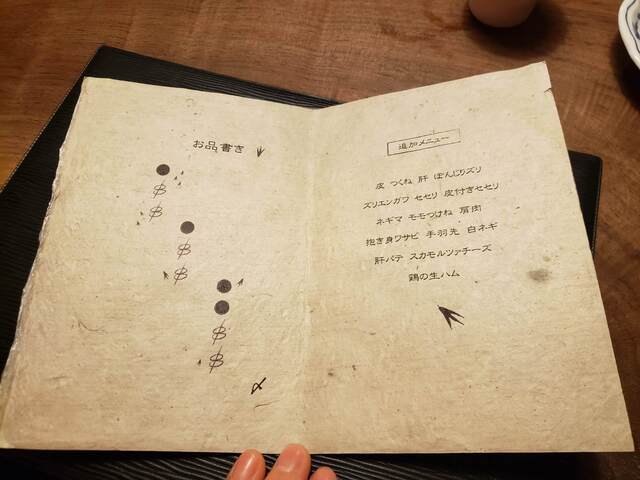 お品書き
〆
追加メニュー
皮 つくね 肝 ぼんじりズリ
ズリエンガワ セセリ 皮付きセセリ
ネギマ モモつけね 肩肉
抱き身ワサビ 手羽先 白ネギ
肝パテ スカモルツァチーズ
鶏の生ハム